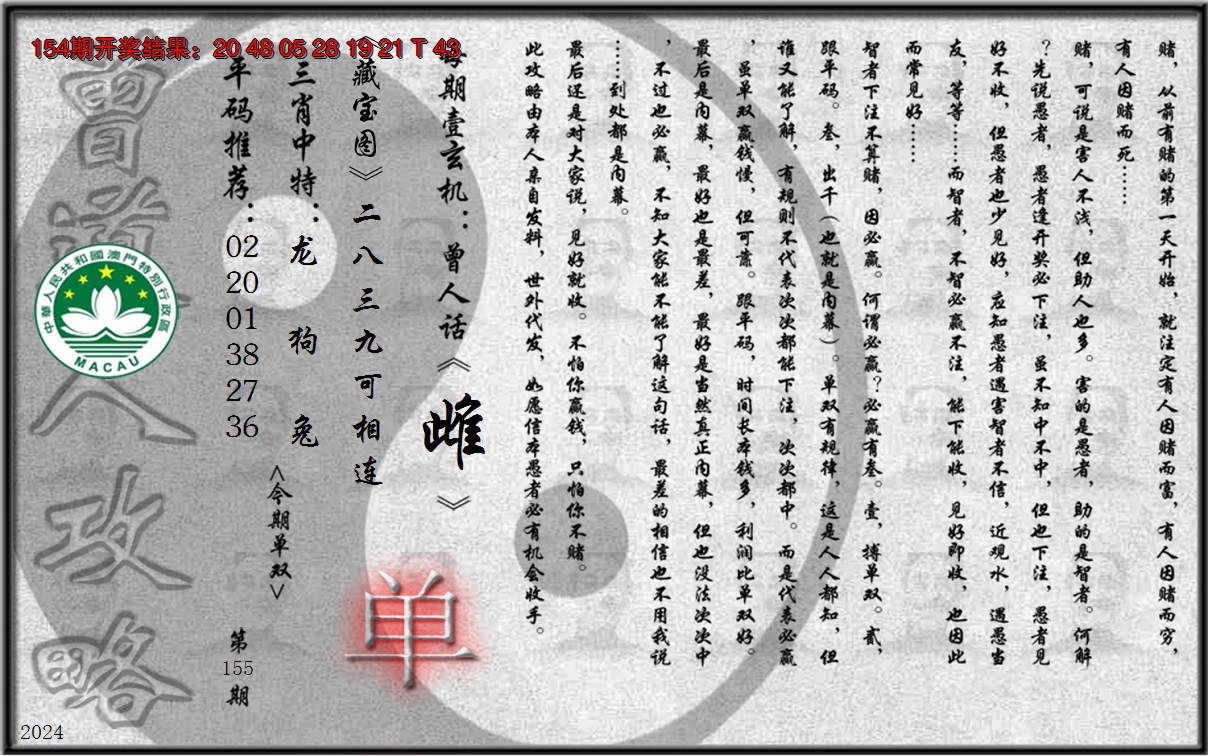 154期开奖结果：20 48 05 28 19 21 T 43
赌，从前有赌的第一天开始，就注定有人因赌而富，有人因赌而穷，
有人因赌而死……
赌，可说是害人不浅，但助人也多。害的是愚者，助的是智者。何解
？先说愚者，愚者逢开奖必下注，虽不知中不中，但也下注，愚者见
好不收，但愚者也少见好，应知愚者遇害智者不信，近观水，遇愚当
友，等等……而智者，不智必赢不注，能下能收，见好即收，也因此
而常见好……
智者下注不算赌，因必赢。何谓必赢？必赢有叁。壹，搏单双。贰，
跟平码。叁，出千（也就是内幕）。单双有规律，这是人人都知，但
谁又能了解，有规则不代表次次都能下注，次次都中。而是代表必赢
，虽单双赢钱慢，但可靠。跟平码，时间长本钱多，利润比单双好。
最后是内幕，最好也是最差，最好是当然真正内幕，但也没法次次中
，不过也必赢，不知大家能不能了解这句话，最差的相信也不用我说
……到处都是内幕。
最后还是对大家说，见好就收。不怕你赢钱，只怕你不赌。
此攻略由本人亲自发料，世外代发，如愿信本愚者必有机会收手。
每期壹玄机：曾人话《雌》
《藏宝图》二八三九可相连
单
三肖中特：龙 狗 兔
<今期单双>
平码推荐：02 20 01 38 27 36
第155期
曾道人攻略
中華人民共和國澳門特別行政區
MACAU
2024